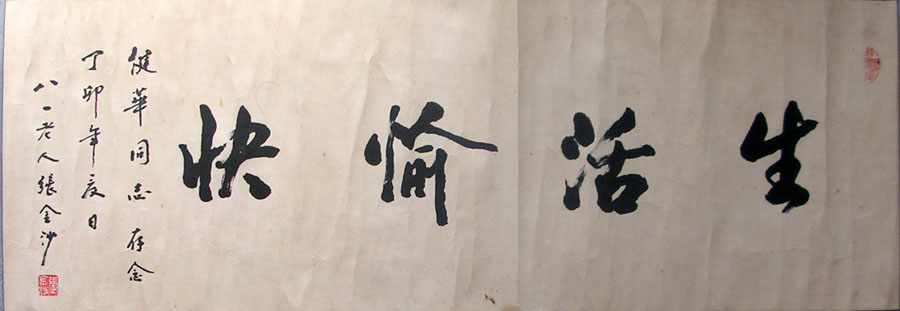 生活愉快
健華同志存念
丁卯年夏日
八一老人張金沙